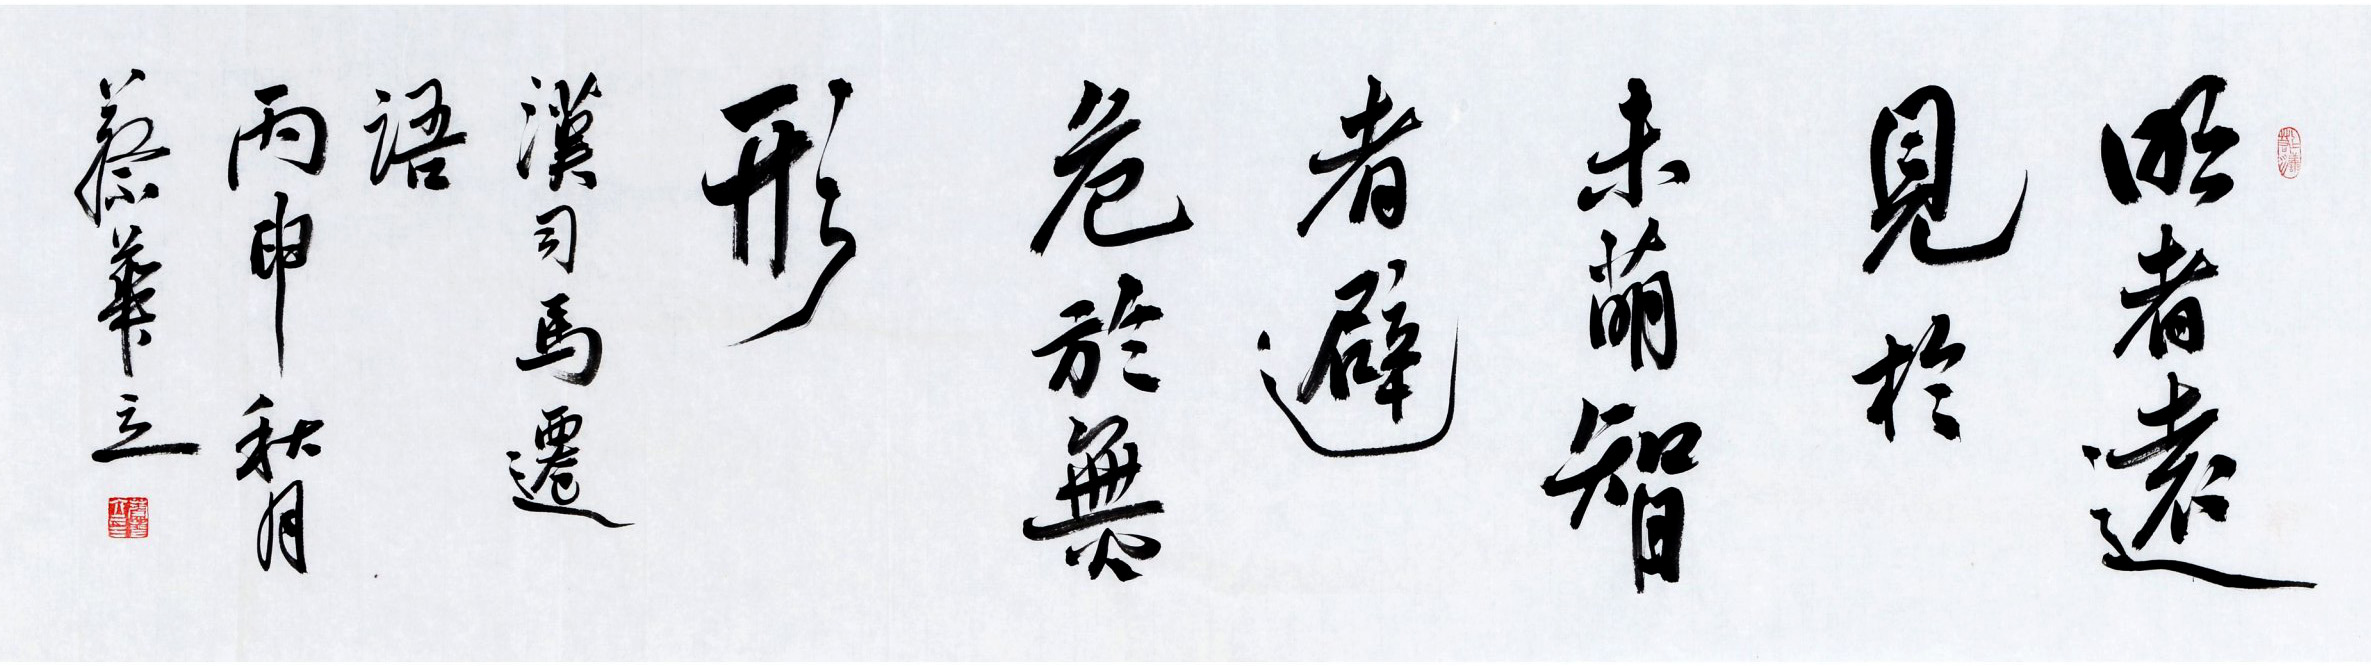 明者遠
見於
未萌智
者避
危於無
形
漢司馬遷
語
丙申秋月
蔡華立